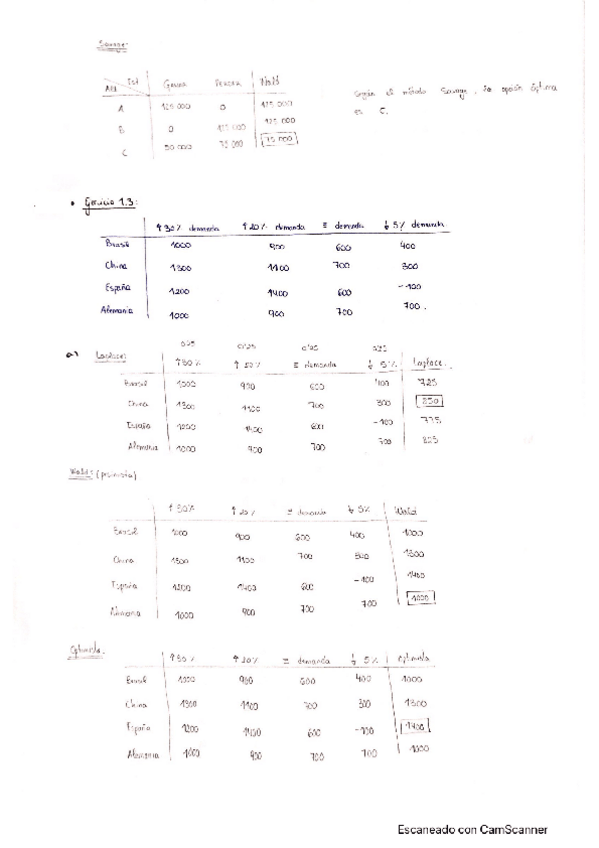 Savage:
Alt Est Gana Pierden Wald
A 125 000 0 125 000
B 0 125 000 125 000
C 50 000 75 000 75 000
Según el método Savage, la opción óptima
es C.
• Ejercicio 1.3:
↑ 30% demanda ↑ 20% demanda = demanda ↓ 5% demanda
Brasil 1000 900 600 400
China 1300 1100 700 300
España 1200 1400 600 -100
Alemania 1000 900 700 700.
a) Laplace:
0'25 0'25 0'25 0'25
↑ 30% ↑ 20% = demanda ↓ 5% Laplace
Brasil 1000 900 600 400 725
China 1300 1100 700 300 850
España 1200 1400 600 -100 775
Alemania 1000 900 700 700 825
Wald: (pesimista)
↑ 30% ↑ 20% = demanda ↓ 5% Wald
Brasil 1000 900 600 400 1000
China 1300 1100 700 300 1300
España 1200 1400 600 -100 1400
Alemania 1000 900 700 700 1000
Optimista.
↑ 30% ↑ 20% = demanda ↓ 5% optimista
Brasil 1000 900 600 400 1000
China 1300 1100 700 300 1300
España 1200 1400 600 -100 1400
Alemania 1000 900 700 700 1000
Escaneado con CamScanner